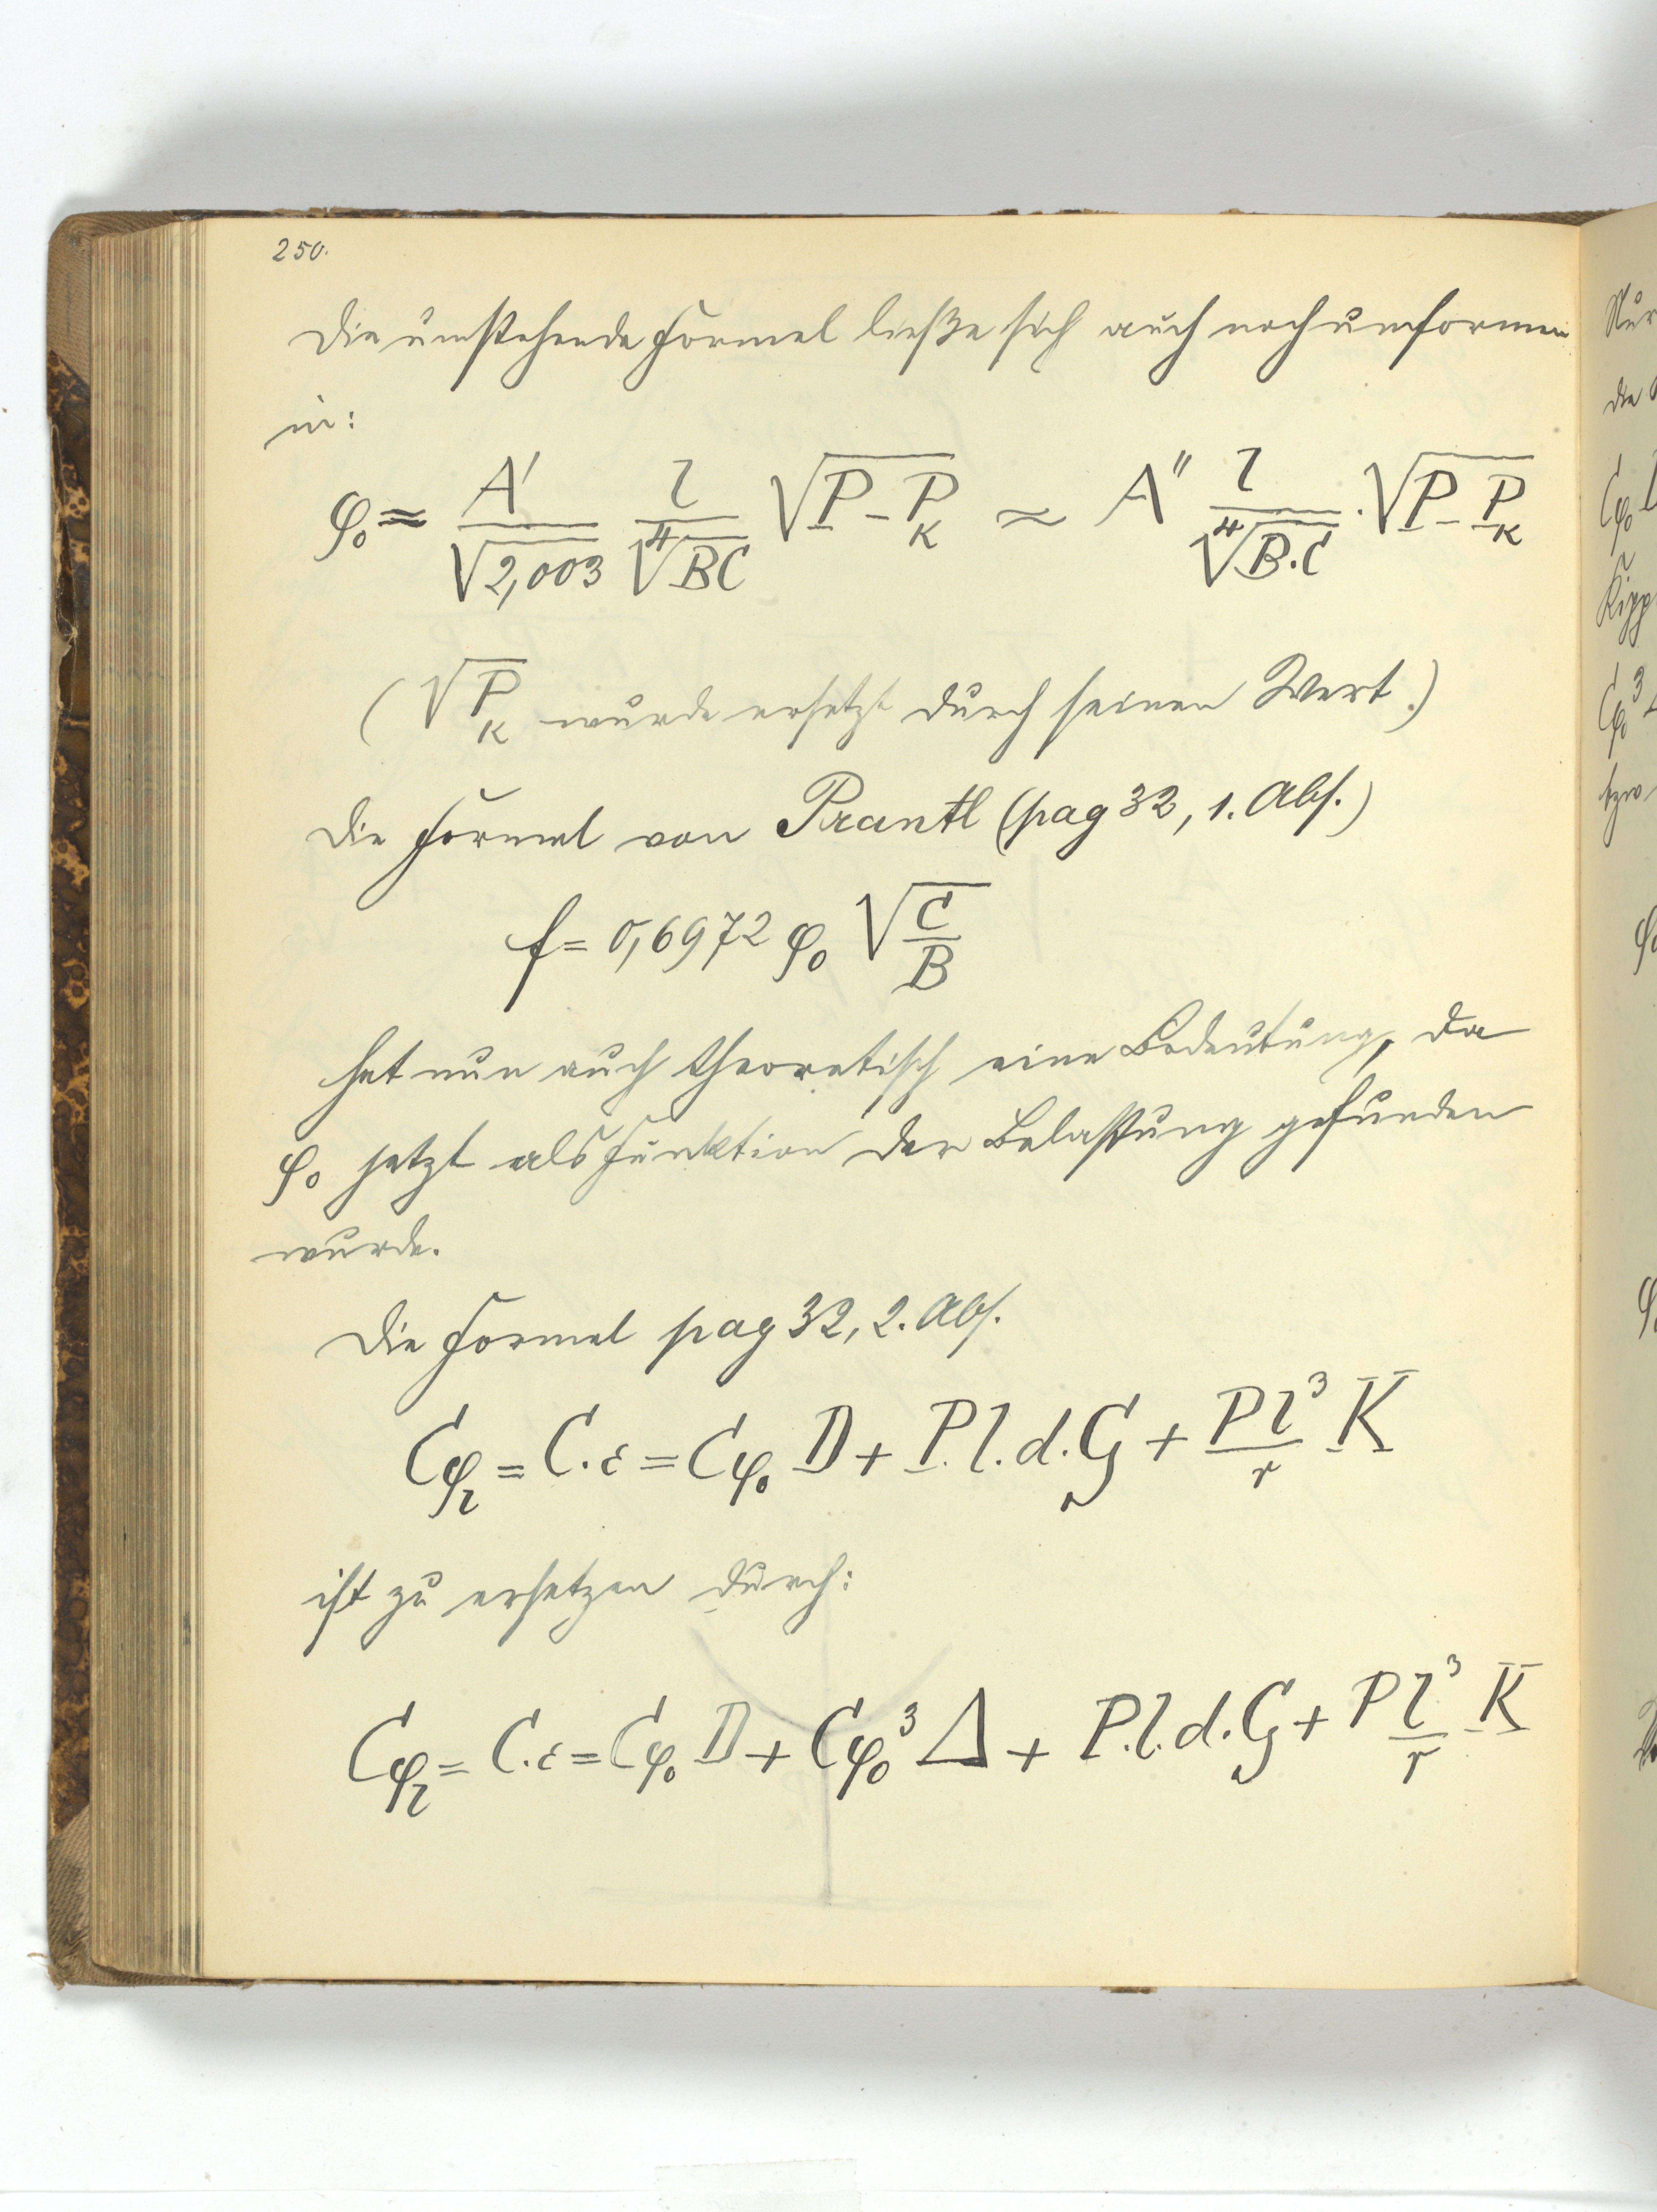 250.
Die umstehende Formel ließe sich auch noch umformen
in:
φ₀ ≈ A'/√2,003 l/∜BC √P - P_K ≈ A'' l/∜B.C . √P - P_K
( √P_K wurde ersetzt durch seinen Wert.)
Die Formel von Prantl (pag 32, 1. Abs.)
f = 0,6972 φ₀ √C/B
hat nun auch theoretisch eine Bedeutung, da
φ₀ jetzt als Funktion der Belastung gefunden
wurde.
Die Formel pag 32, 2. Abs.
Cφ_l = C.ε = Cφ₀ D + P.l.d.G + Pl³/r K
ist zu ersetzen durch:
Cφ_l = C.ε = Cφ₀ D + Cφ₀³ Δ + P.l.d.G + Pl³/r K